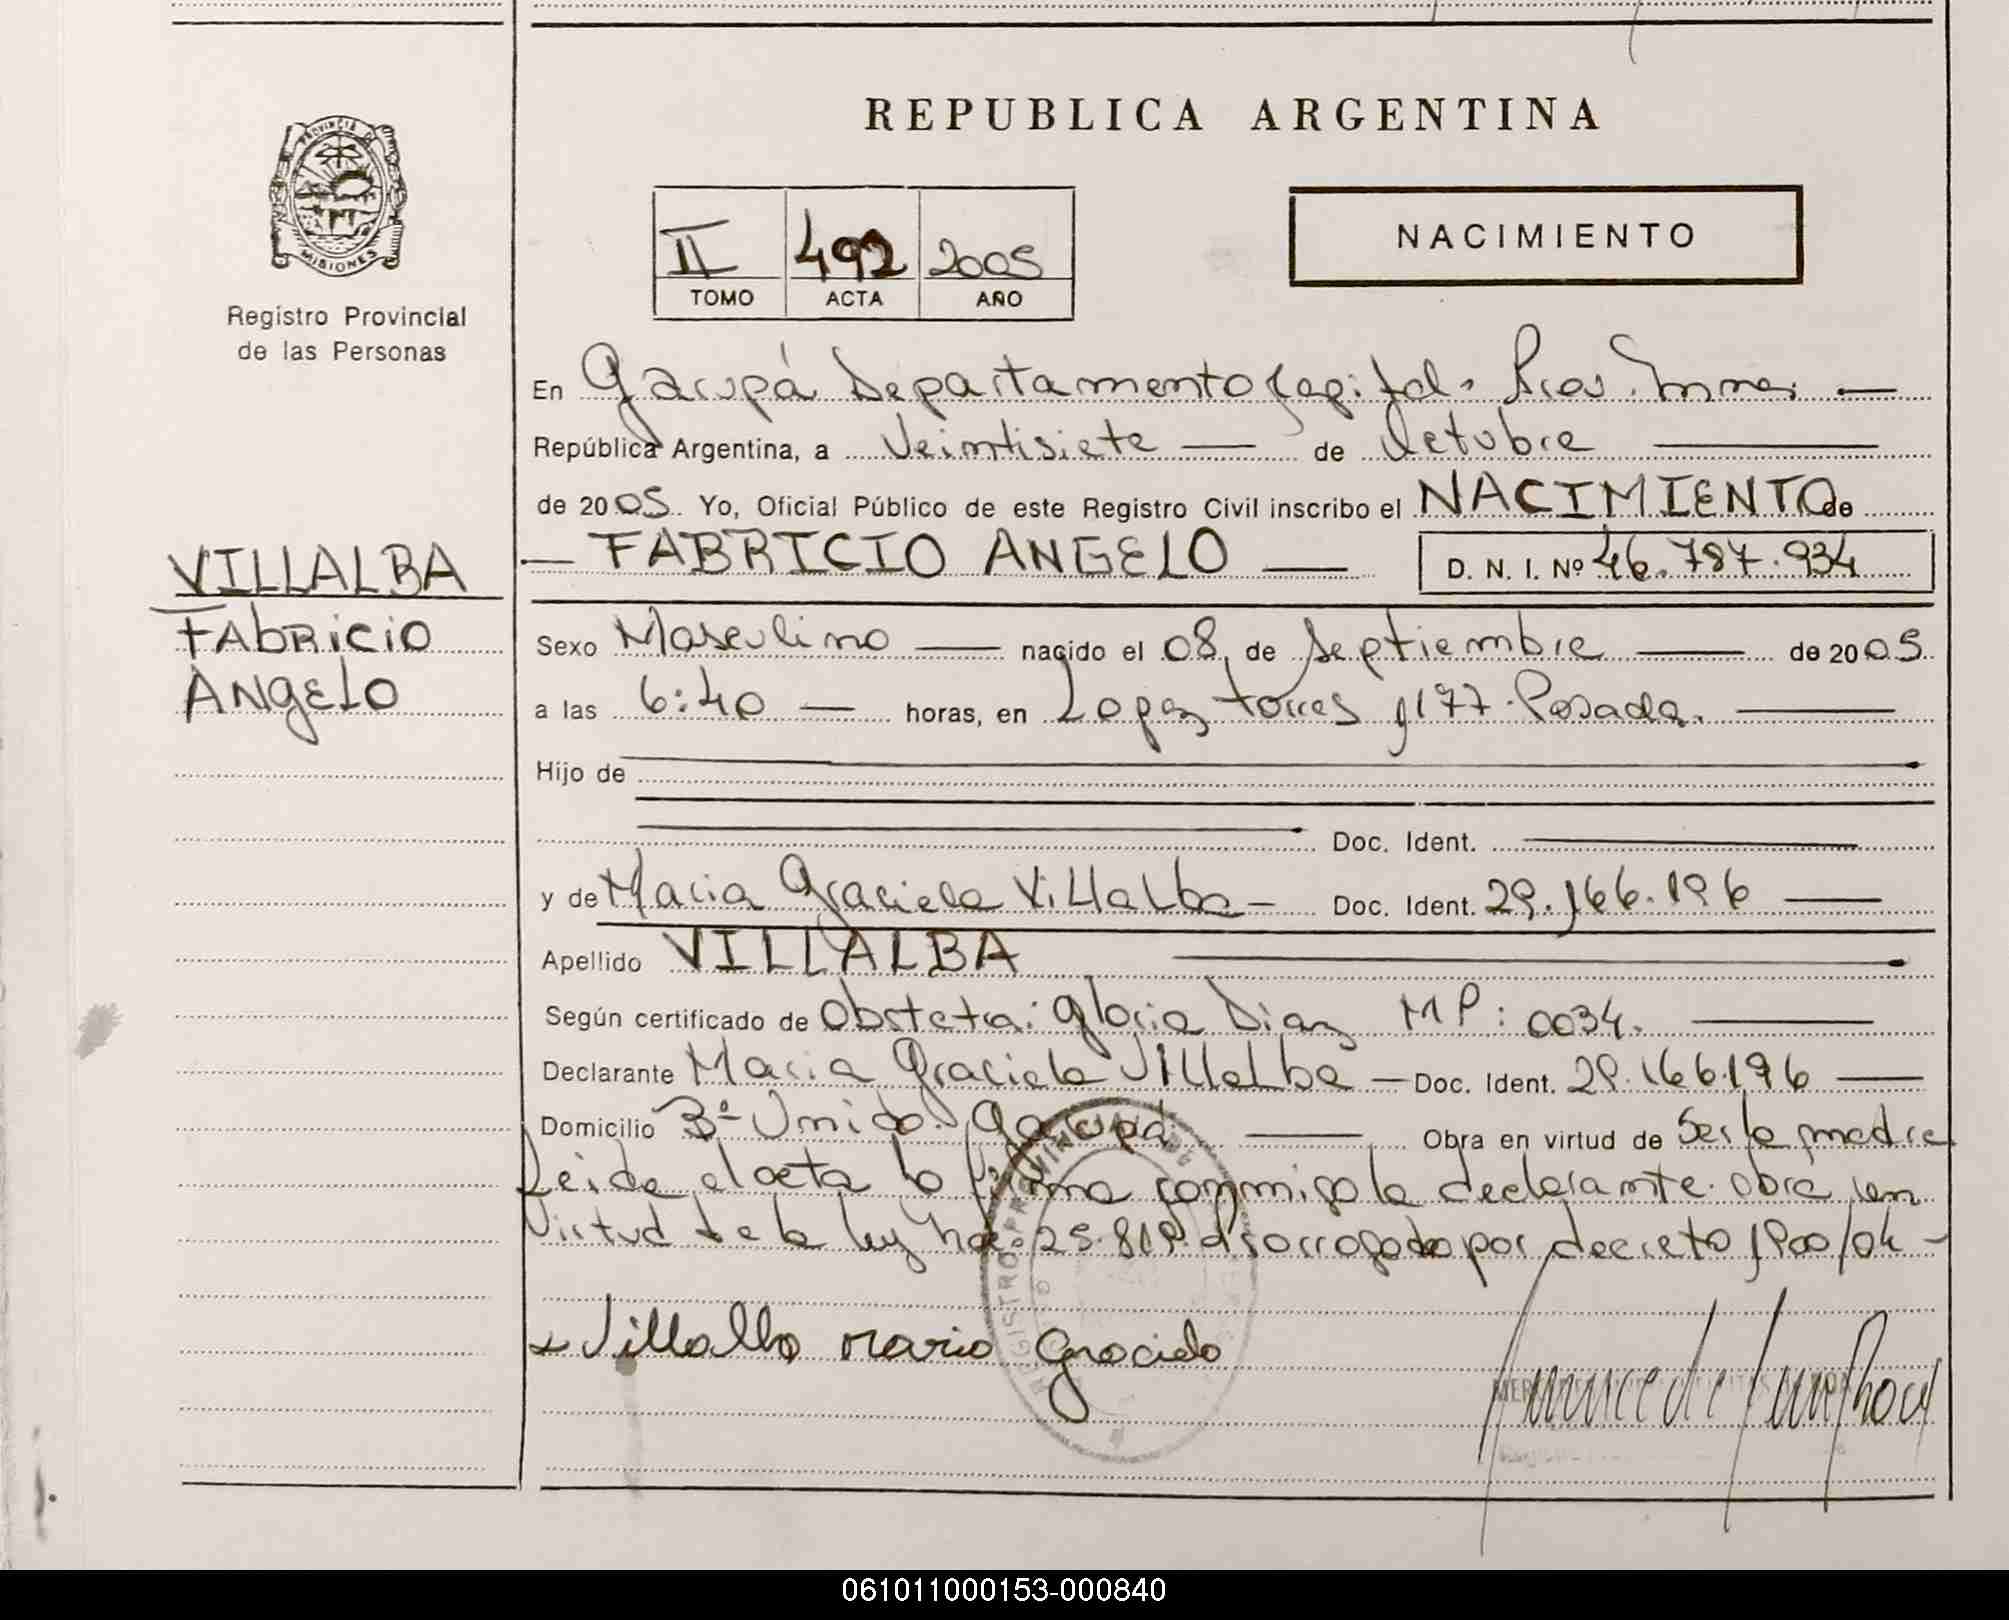 REPUBLICA ARGENTINA
PROVINCIA DE
MISIONES
Registro Provincial
de las Personas
II 492 2005
TOMO ACTA AÑO
NACIMIENTO
En Garupá Departamento Capital. Pcia. Mnes. —
República Argentina, a Veintisiete — de Octubre
de 2005. Yo, Oficial Público de este Registro Civil inscribo el NACIMIENTO de
— FABRICIO ANGELO — D. N. I. Nº 46.787.934
VILLALBA
FAbRiciO
ANgELO
Sexo Masculino — nacido el 08 de Septiembre — de 2005.
a las 6:40 — horas, en Lopez torres 1177. Posadas. —
Hijo de
Doc. Ident.
y de Maria Graciela Villalba — Doc. Ident. 29.166.196 —
Apellido VILLALBA
Según certificado de Obstetra: Gloria Diaz MP: 0034. —
Declarante Maria Graciela Villalba — Doc. Ident. 29.166.196 —
Domicilio Bº Unido. Garupá — Obra en virtud de Ser la madre
Leida el acta la firma conmigo la declarante. obra en
Virtud de la ley 25.819 prorrogado por decreto 1900/04 -
Villalba Maria Graciela
REGISTRO PROVINCIAL DE
061011000153-000840